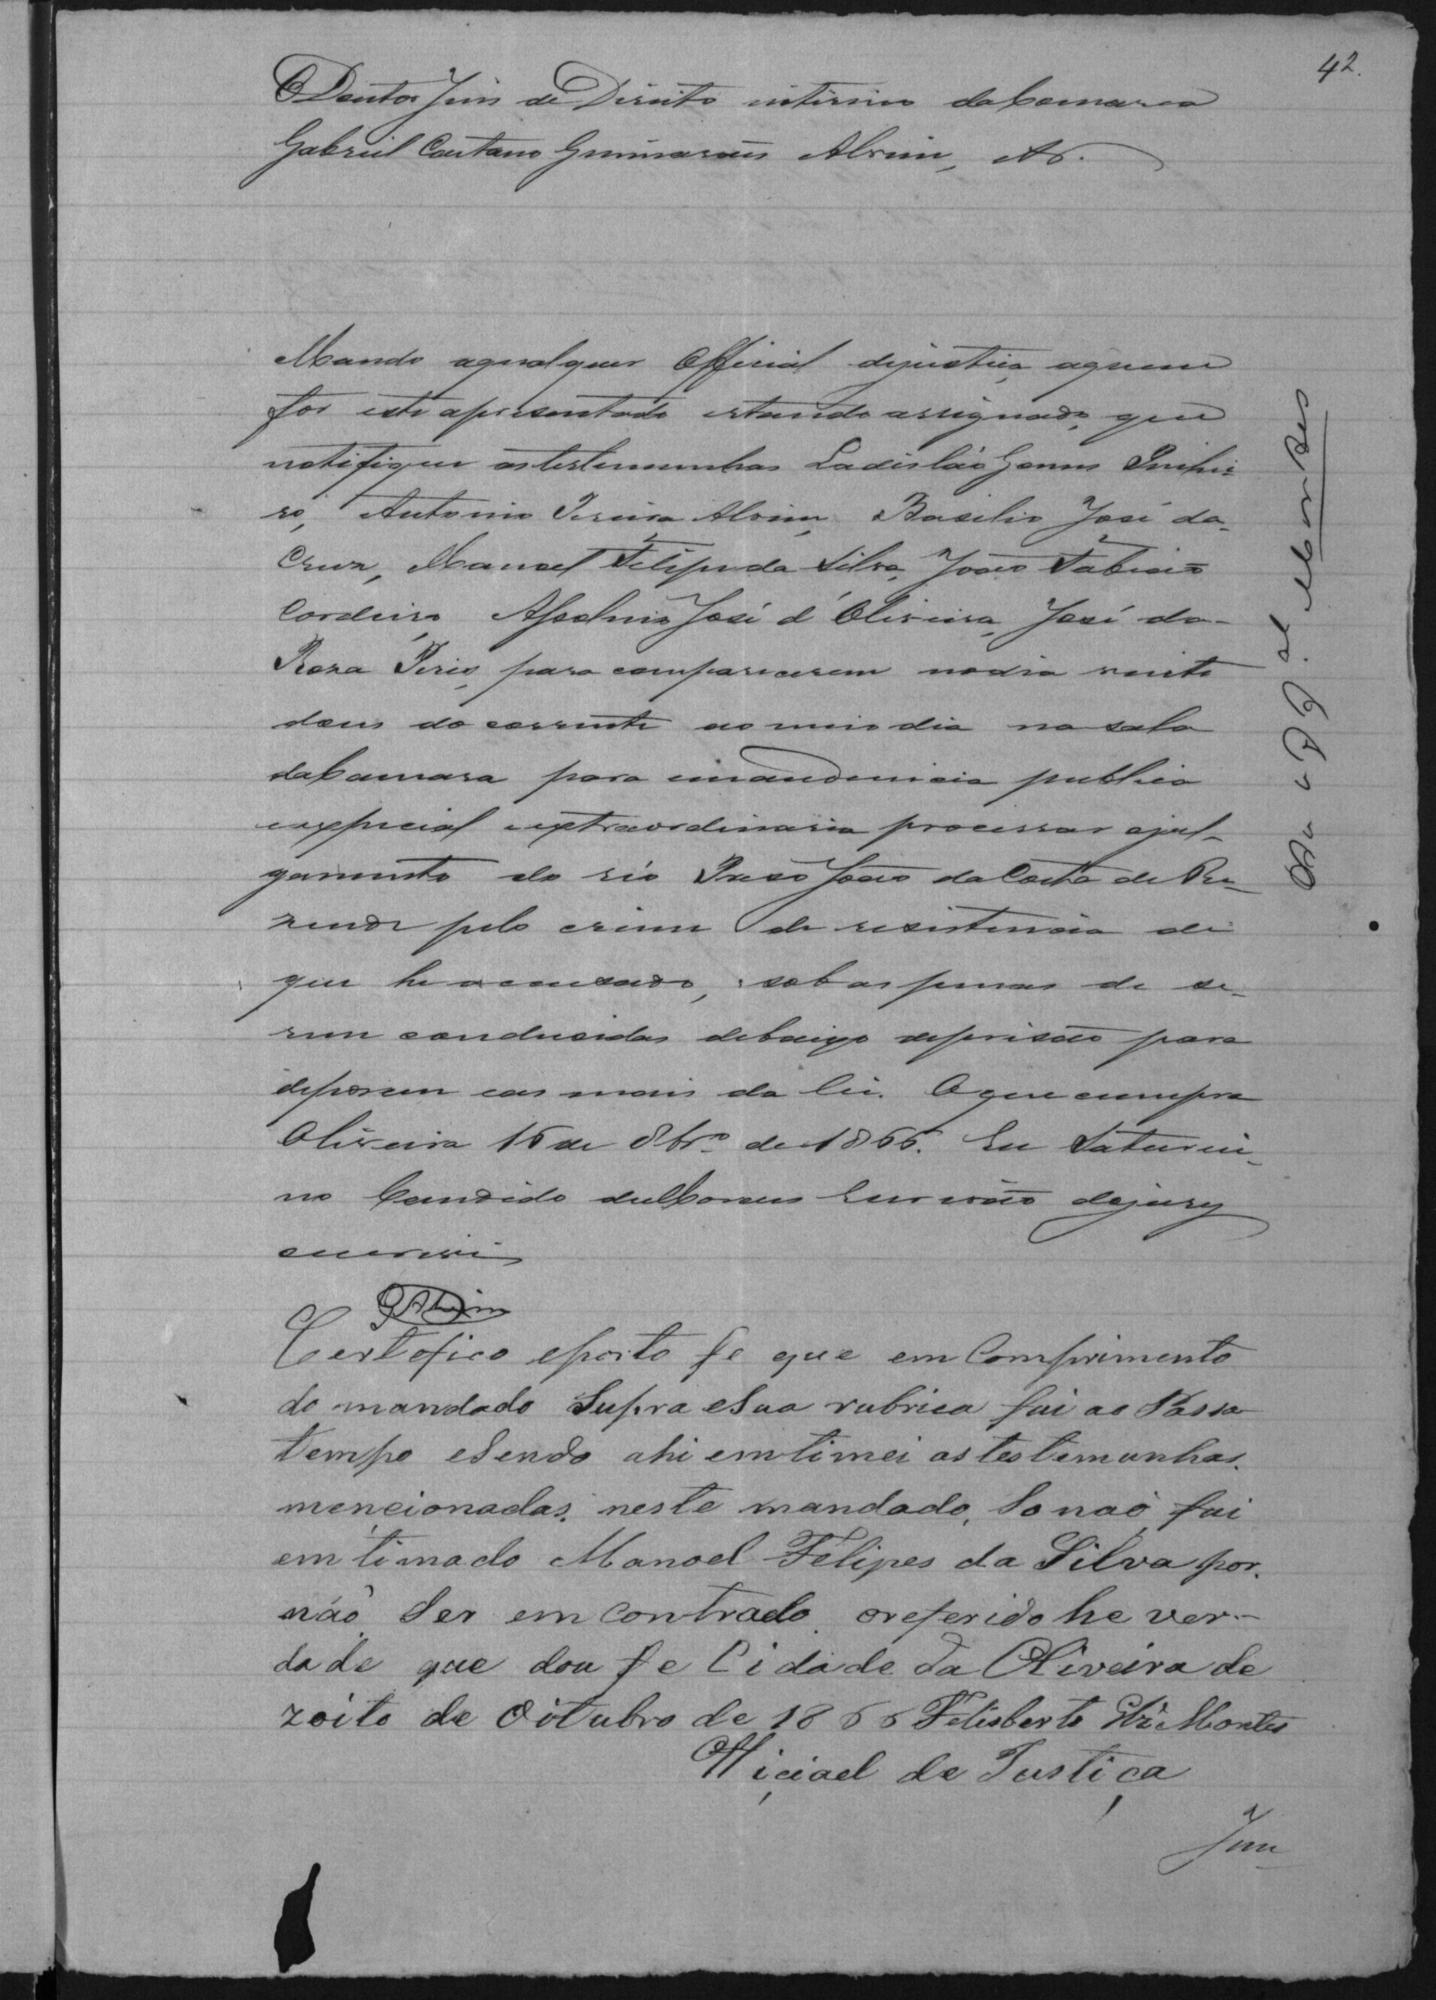 42.
O Doutor Juis de Direito interino da Comarca
Gabriel Caetano Guimarães Alvim, &.
Mando aqualquer Official dejustiça aquem
for este apresentado estando assignado, que
notifique astestemunhas Ladislão Gomes Pinhei-
ro, Antonio Pereira Alvim, Basilio José da
Cruz, Manoel Felipe da Silva, João Fabiao
Cordeiro, José d'Oliveira, José da
Roza Pires, para comparecerem nodia vinte
dous do corrente ao meio dia na sala
daCamara para emaudiencia publica
especial extraordinaria processar ejul-
gamento do réo Preso João da Costa de Re-
zende pelo crime de resistencia de
que he accusado, sob as penas de se-
rem conduzidas debaixo deprisão para
deporem eas mais da lei. O que cumpra
Oliveira 16 de 8br.o de 1866. Eu Saturni-
no Candido deMoraes Escrivão dojury
escrevi
GAlvim
Certofico eporto fe que em Comprimento
do mandado Supra eSua rubrica fui ao Passa
tempo eSendo ahi emtimei as testemunhas.
mencionadas. neste mandado. So naõ fui
emtimado Manoel Felipes da Silva por.
naõ Ser emcontrado. oreferido he ver-
dade que dou fe Cidade da Oliveira de
zoito de Oitubro de 1866 Felisberto Montes
Oficiael de Justiça
Jun